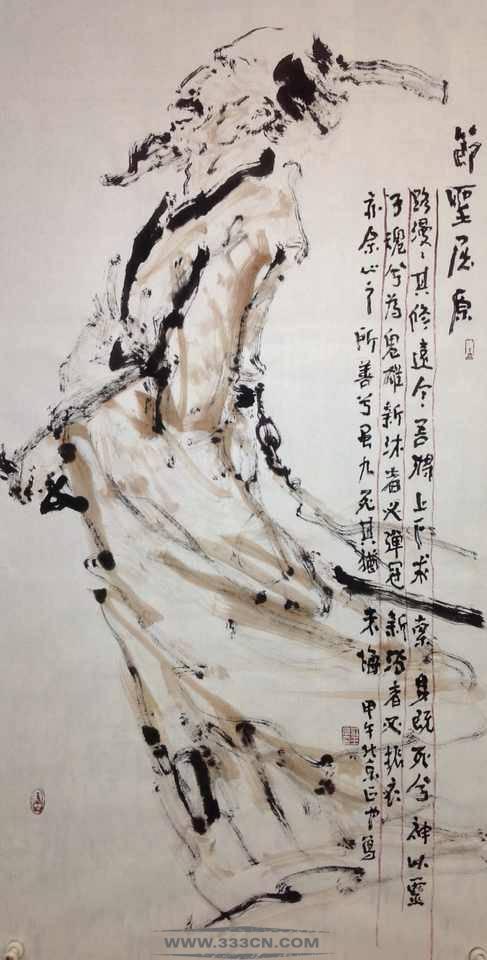 節聖屈原
路漫々其修遠兮吾將上下求索身既死兮神以靈
子魂兮為鬼雄新沐者必彈冠新浴者必振衣
亦余心之所善兮虽九死其猶未悔 甲午北京
WWW.333CN.COM